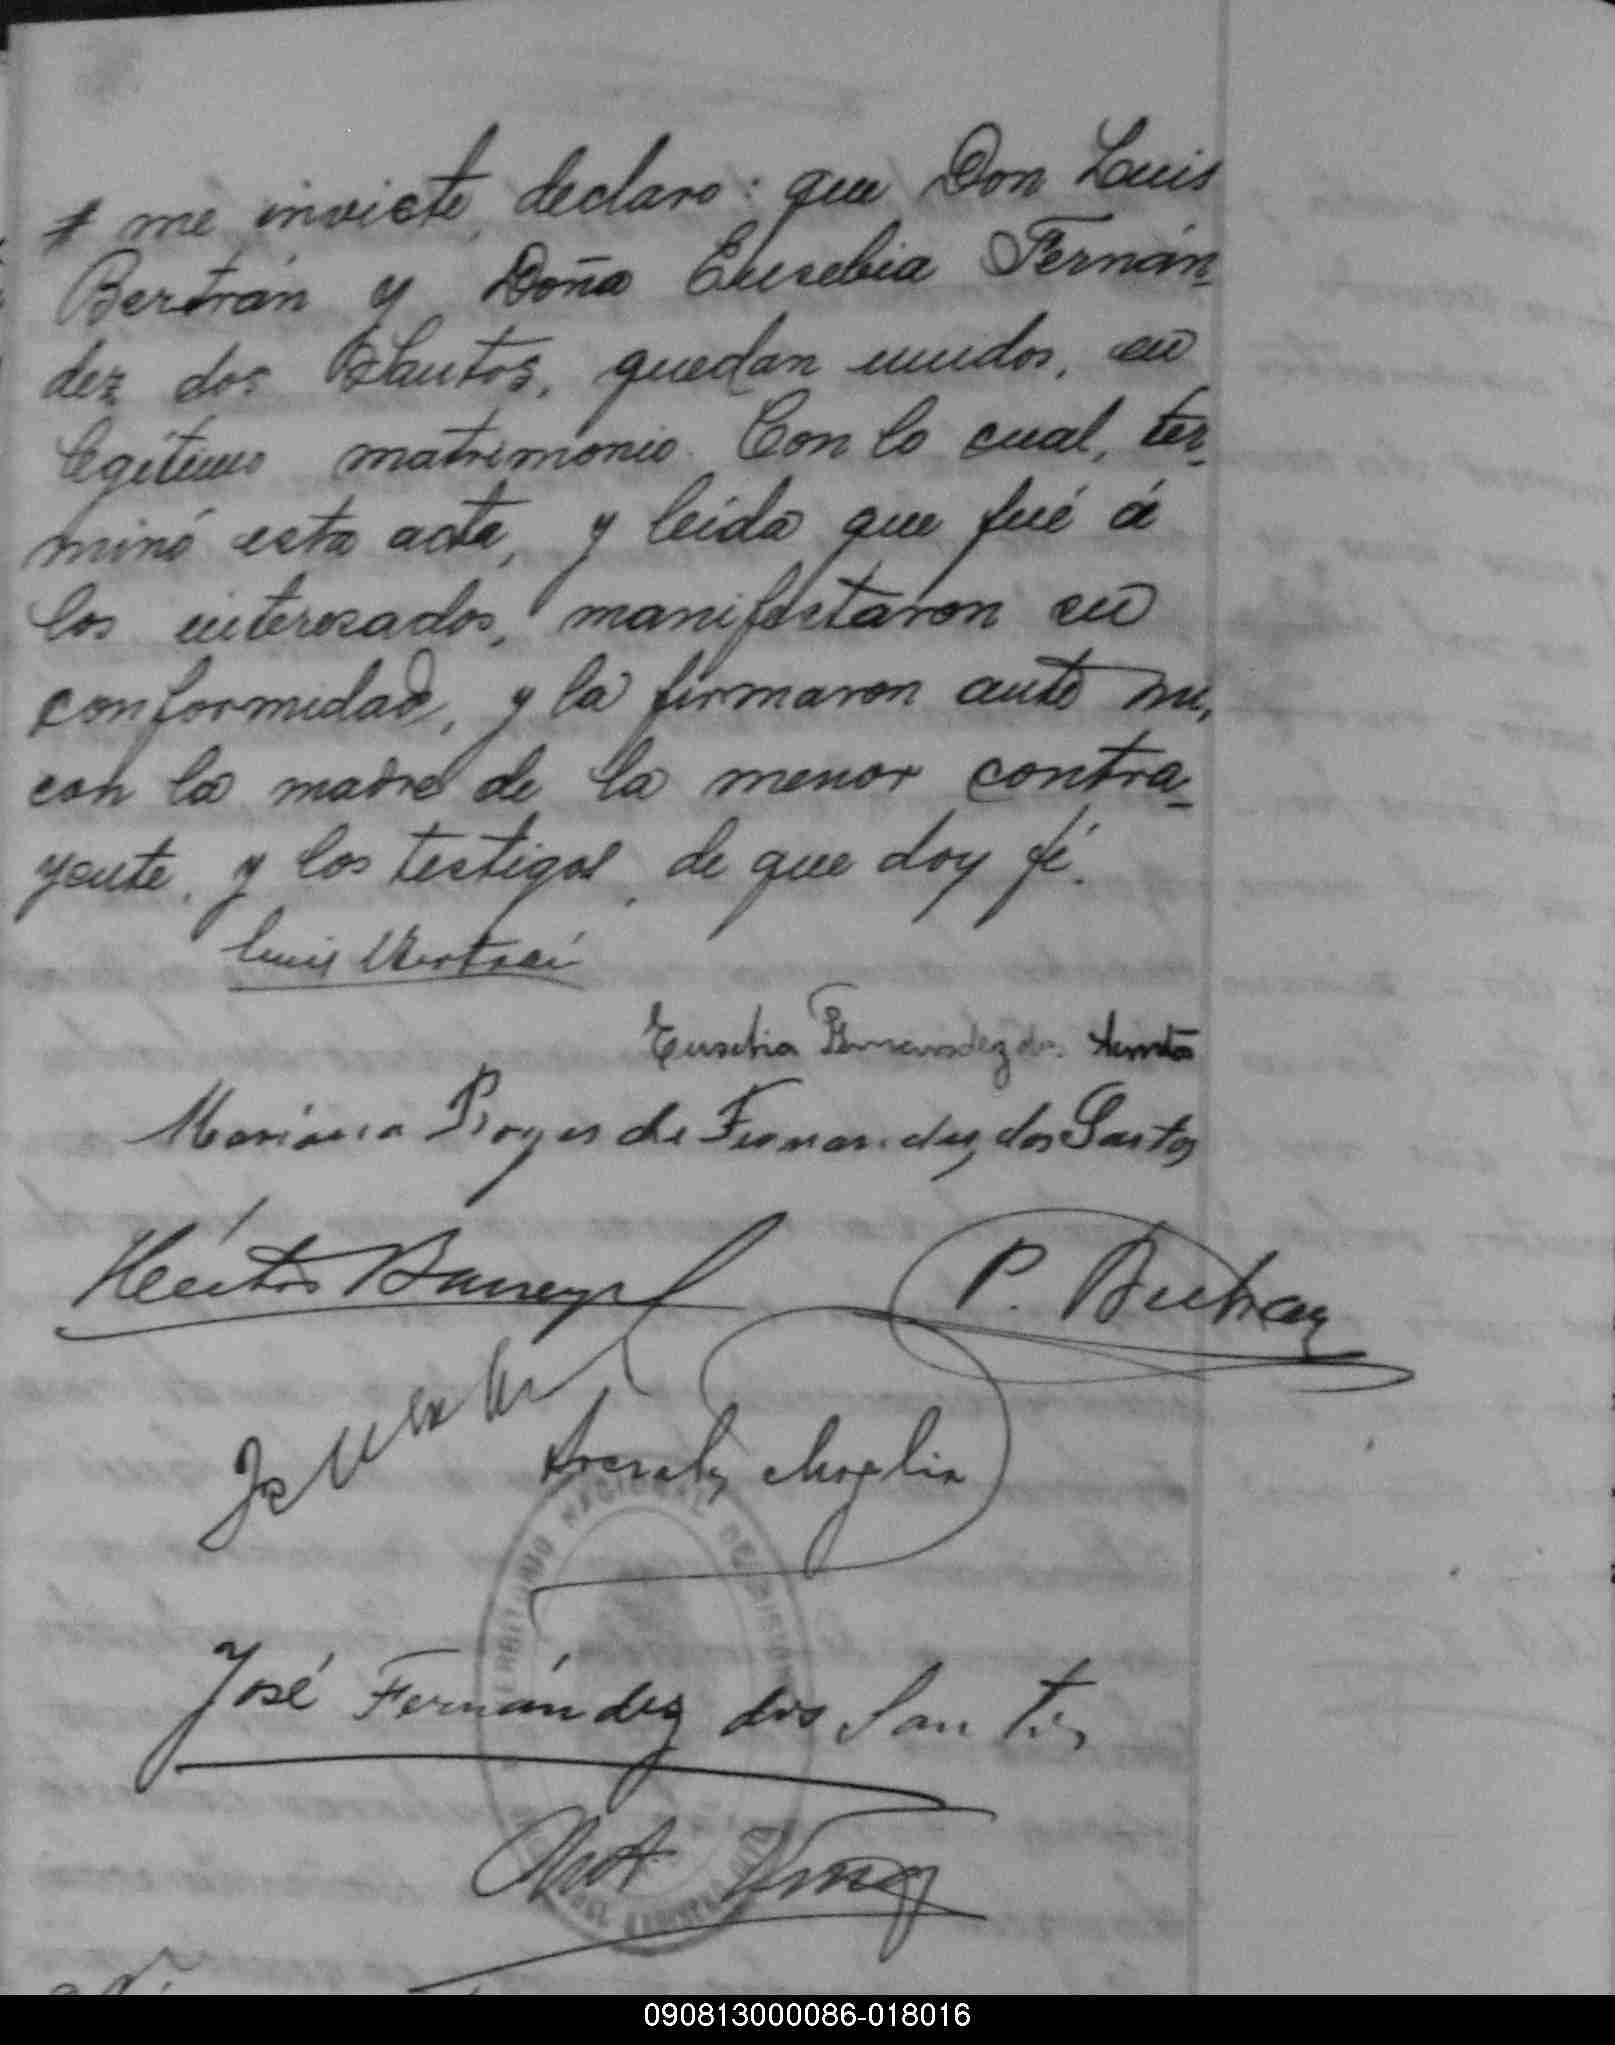 me inviste, declaro: que Don Luis
Bertrán y Doña Eusebia Fernán-
dez dos Santos, quedan unidos, en
legítimo matrimonio. Con lo cual, ter-
minó esta acta, y leída que fué á
los interesados, manifestaron su
conformidad, y la firmaron ante mi,
con la madre de la menor contra-
yente, y los testigos, de que doy fé.
Luis Bertrán
Eusebia Fernandez dos Santos
Mariana de Fernandez dos Santos
Héctor
P. Bertran
José Fernández dos Santos
090813000086-018016